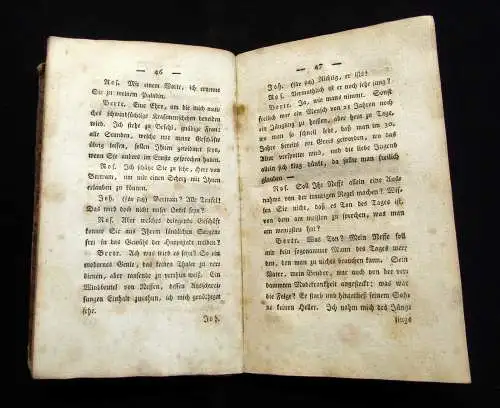 — 46 —
Ros. Mit einem Worte, ich ernenne
Sie zu meinem Paladin.
Bertr. Eine Ehre, um die mich man-
ches schwindsüchtige Kraftmännchen beneiden
wird. Ich stehe zu Befehl, gnädige Frau:
alle Stunden, welche mir meine Geschäfte
übrig lassen, sollen Ihnen gewidmet seyn,
wenn Sie anders im Ernste gesprochen haben.
Ros. Ich schätze Sie zu sehr, Herr von
Bertram, um mir einen Scherz mit Ihnen
erlauben zu können.
Joh. (für sich) Bertram? Alle Teufel!
Das wird doch nicht unser Onkel seyn?
Ros. Aber welches dringende Geschäft
konnte Sie aus Ihrem ländlichen Sorgen-
frei in das Gewühl der Hauptstadt ziehen?
Bertr. Ach was wird es seyn? So ein
modernes Genie, das keinen Thaler zu ver-
dienen, aber tausende zu verthun weiß. Ein
Windbeutel von Neffen, dessen Ausschwei-
fungen Einhalt zu thun, ich mich genöthiget
sehe.
Joh.
— 47 —
Joh. (für sich) Richtig, er ists!
Ros. Vermuthlich ist er noch sehr jung?
Bertr. Ja, wie mans nimmt. Sonst
freilich war ein Mensch von 25 Jahren noch
ein Jüngling zu heißen, aber heut zu Tage,
wo man so schnell lebt, daß man im 30.
Jahre bereits ein Greis geworden, um das
Alter verspottet wird, und die liebe Jugend
allein sich klug dünkt, da sollte man freilich
glauben —
Ros. Soll Ihr Neffe allein eine Aus-
nahme von der traurigen Regel machen? Wis-
sen Sie nicht, daß es Ton des Tages ist,
von dem am meisten zu sprechen, was man
am wenigsten hat?
Bertr. Was Ton? Mein Neffe soll
mir kein solcher Mann des Tages wer-
den, den man zu nichts brauchen kann. Sein
Vater, mein Bruder, war auch von der ver-
dammten Modekrankheit angesteckt; was war
die Folge? Er starb und hinterließ seinem Soh-
ne keinen Heller. Ich nahm mich des Jüng-
lings